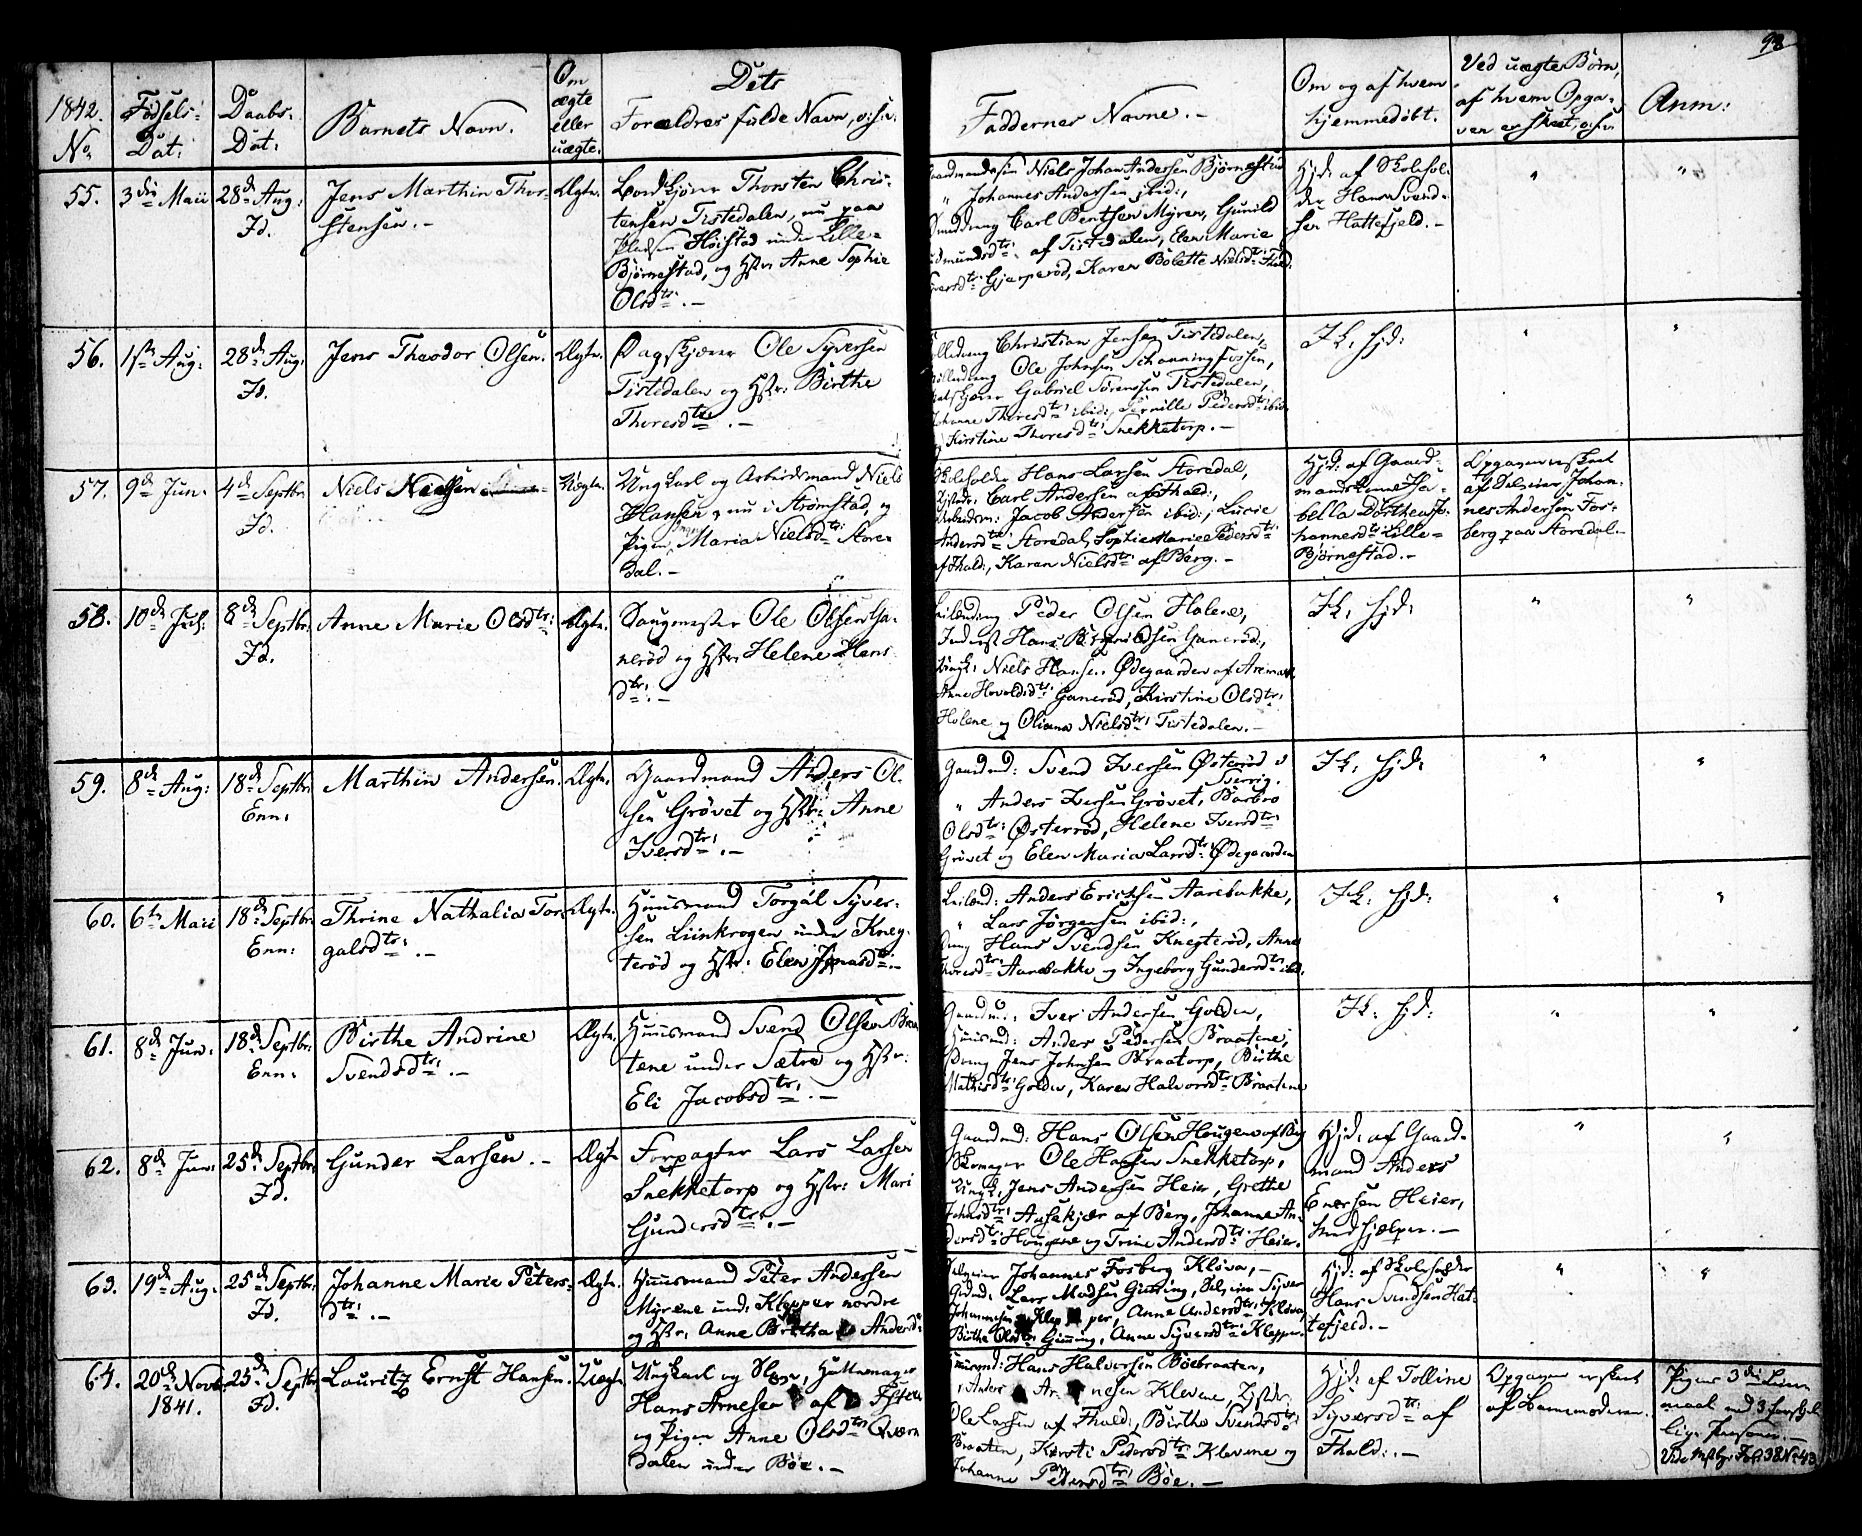 98
1842.
No.
Fødsels-
Dat:
Daabs-
Dat:
Barnets Navn.
Om
ægte
eller
uægte.
Dets
Forældres fulde Navn, o:s:v:
Faddernes Navne.-
Om og af hvem
hjemmedøbt.
Ved uægte Børn,
af hvem Opga-
ven er skeet, o:s:v
Anm:
55.
3die Maii
28de Aug:
Id.
Jens Marthin Thor-
stensen.-
Ægte.
Bordkjører Thorsten Chris-
tensen Tistedalen, nu paa
Pladsen Høistad under Lille-
Bjørnestad, og Hstr: Anne Sophie
Olsdtr:.-
Niels Johan Andersen Bjørnestad
" Johannes Andersen ibid:,
Carl Bentsen Myren, Gunild
af Tistedalen, Elen Marie
Gjerperød, Karen Bolette Nielsdtr: Fhald:
Hjd: af Skolehol-
der Hans Svend-
sen Hattefjeld.-
"
"
56.
1ste Aug:
28de Aug:
Id.
Jens Theodor Olsen.
Ægte.
Dagskjører Ole Syversen
Tistedalen og Hstr: Birthe
Thoresdtr:.-
Christian Jensen Tistedalen,
Ole Johnsen Schanning Fossen,
Gabriel Sørensen Tistedalen,
Johanne Thoresdtr: ibid:, Pernille Pedersdtr: ibid:
og Kirstine Thoresdtr: Snekketorp.-
Ik: hjd:
"
"
57.
9de Jun.
4de Septbr:
Id.
Niels Nielsen
Uægte.
Ungkarl og Arbeidsmand Niels
Hansen, nu i Strømstad, og
Pigen Maria Nielsdtr: Store-
dal.-
Skoleholder Hans Larsen Storedal,
Carl Andersen af Fhald:,
Arbeidsm: Jacob Andersen ibid:, Lucie
Andersdtr: Storedal, Sophie Marie Pedersdtr:
af Fhald:, Karen Nielsdtr: af Berg.-
Hjd: af Gaard-
mandskone Isa-
bella Dorthea Jo-
hannesdtr: Lille-
Bjørnestad.-
Opgaven er skeet
af Deleier Johan-
nes Andersen Fos-
berg paa Storedal.-
58.
10de Jul:
8de Septbr:
Id.
Anne Marie Olsdtr:
Ægte.
Saugmester Ole Olsen Ga-
nerød og Hstr: Helene Hans
dtr:.-
Leilænding Peder Olsen Holene,
Inderst Hans Ganerød,
Ungk: Niels Hansen Ødegaarden af Aremark
Anne Ganerød, Kirstine Olsdtr:
Holene og Oliana Nielsdtr: Tistedalen.-
Ik: hjd:
"
"
59.
8de Aug:
18de Septbr:
Enn:
Marthin Andersen.
Ægte.
Gaardmand Anders Ol-
sen Grøvet og Hstr: Anne
Iversdtr:.-
Gaardmd: Svend Iversen Østerød i
Sverrig.
" Anders Iversen Grøvet, Barbro
Olsdtr: Østerrød, Helene Iversdtr:
Grøvet og Elen Maria Larsdtr: Ødegaarden
Ik: hjd:
"
"
60.
6te Maii
18de Septbr:
Enn:
Thrine Nathalia Tor-
galsdtr:.-
Ægte.
Huusmand Torgal Syver-
sen Liinkrogen under Kneg-
terød og Hstr: Elen Jonasdtr:.-
Leilænd: Anders Ericksen Aarebakke,
" Lars Jørgensen ibid:,
Hans Svendsen Knegterød, Anne
Thoresdtr: Aarebakke og Ingeborg Gundersdtr: ibid.
Ik: hjd:
"
"
61.
8de Jun:
18de Septbr:
Enn:
Birthe Andrine
Svendsdtr:.-
Ægte.
Huusmand Svend Olsen Braa-
tene under Sætre og Hstr:
Eli Jacobsdtr:.-
Gaardmd: Iver Andersen Golden,
Huusmd: Anders Pedersen Braatene,
Jens Johnsen Braatorp, Birthe
Mathisdtr: Golden, Karen Halvorsdtr: Braatene
Ik: hjd:
"
"
62.
8de Jun:
25de Septbr:
Id.
Gunder Larsen.-
Ægte
Forpagter Lars Larsen
Snekketorp og Hstr: Mari
Gundersdtr:.-
Gaardmd: Hans Olsen Hougene af Berg
Skomager Ole Hansen Snekketorp,
Ungk: Jens Andersen Heier, Grethe
Johnsdtr: Aasekjær af Berg, Johanne An-
dersdtr: Hougene og Trine Andersdtr: Heier.
Hjd: af Gaard-
mand Anders
Enersen Heier,
Medhjelper.-
"
"
63.
19de Aug:
25de Septbr:
Id.
Johanne Marie Peters-
dtr:.-
Ægte.
Huusmand Peter Andersen
Myrene und: Klepper nordre
og Hstr: Anne Britha Andersdtr
Deleier Johannes Fosberg Kløva,-
Gmd: Lars Madsen Gimming, Deleier Syver
Johannesen Klepper, Anne Andersdtr: Kløva,
Birthe Olsdtr: Gimming, Anne Syversdtr: Klepper.
Hjd: af Skoleholder
Hans Svendsen Hat-
tefjeld.-
"
"
64.
20de Novbr:
1841.
25de Septbr:
Id.
Lauritz Ernst Hansen.
Uægte
Ungkarl og Hattemager
Hans Arnesen af
og Pigen Anne Olsdtr: Qværn
dalen under Bøe.-
Huusmd: Hans Halvorsen Bøebraaten,
" Anders Arnesen Klevene,
Ole Larsen af Fhald:, Birthe Svendsdtr:
Braaten, Kersti Pedersdtr: Klevene og
Johanne Pedersdtr: Bøe.-
Hjd: af Tolline
Syversdtr: af
Fhald:.-
Opgaven er skeet
af Barnemoderen.
Pigens 3die Leier-
maal med 3 forskjel-
lige Personer.-
Vide Fol: 38 No 48